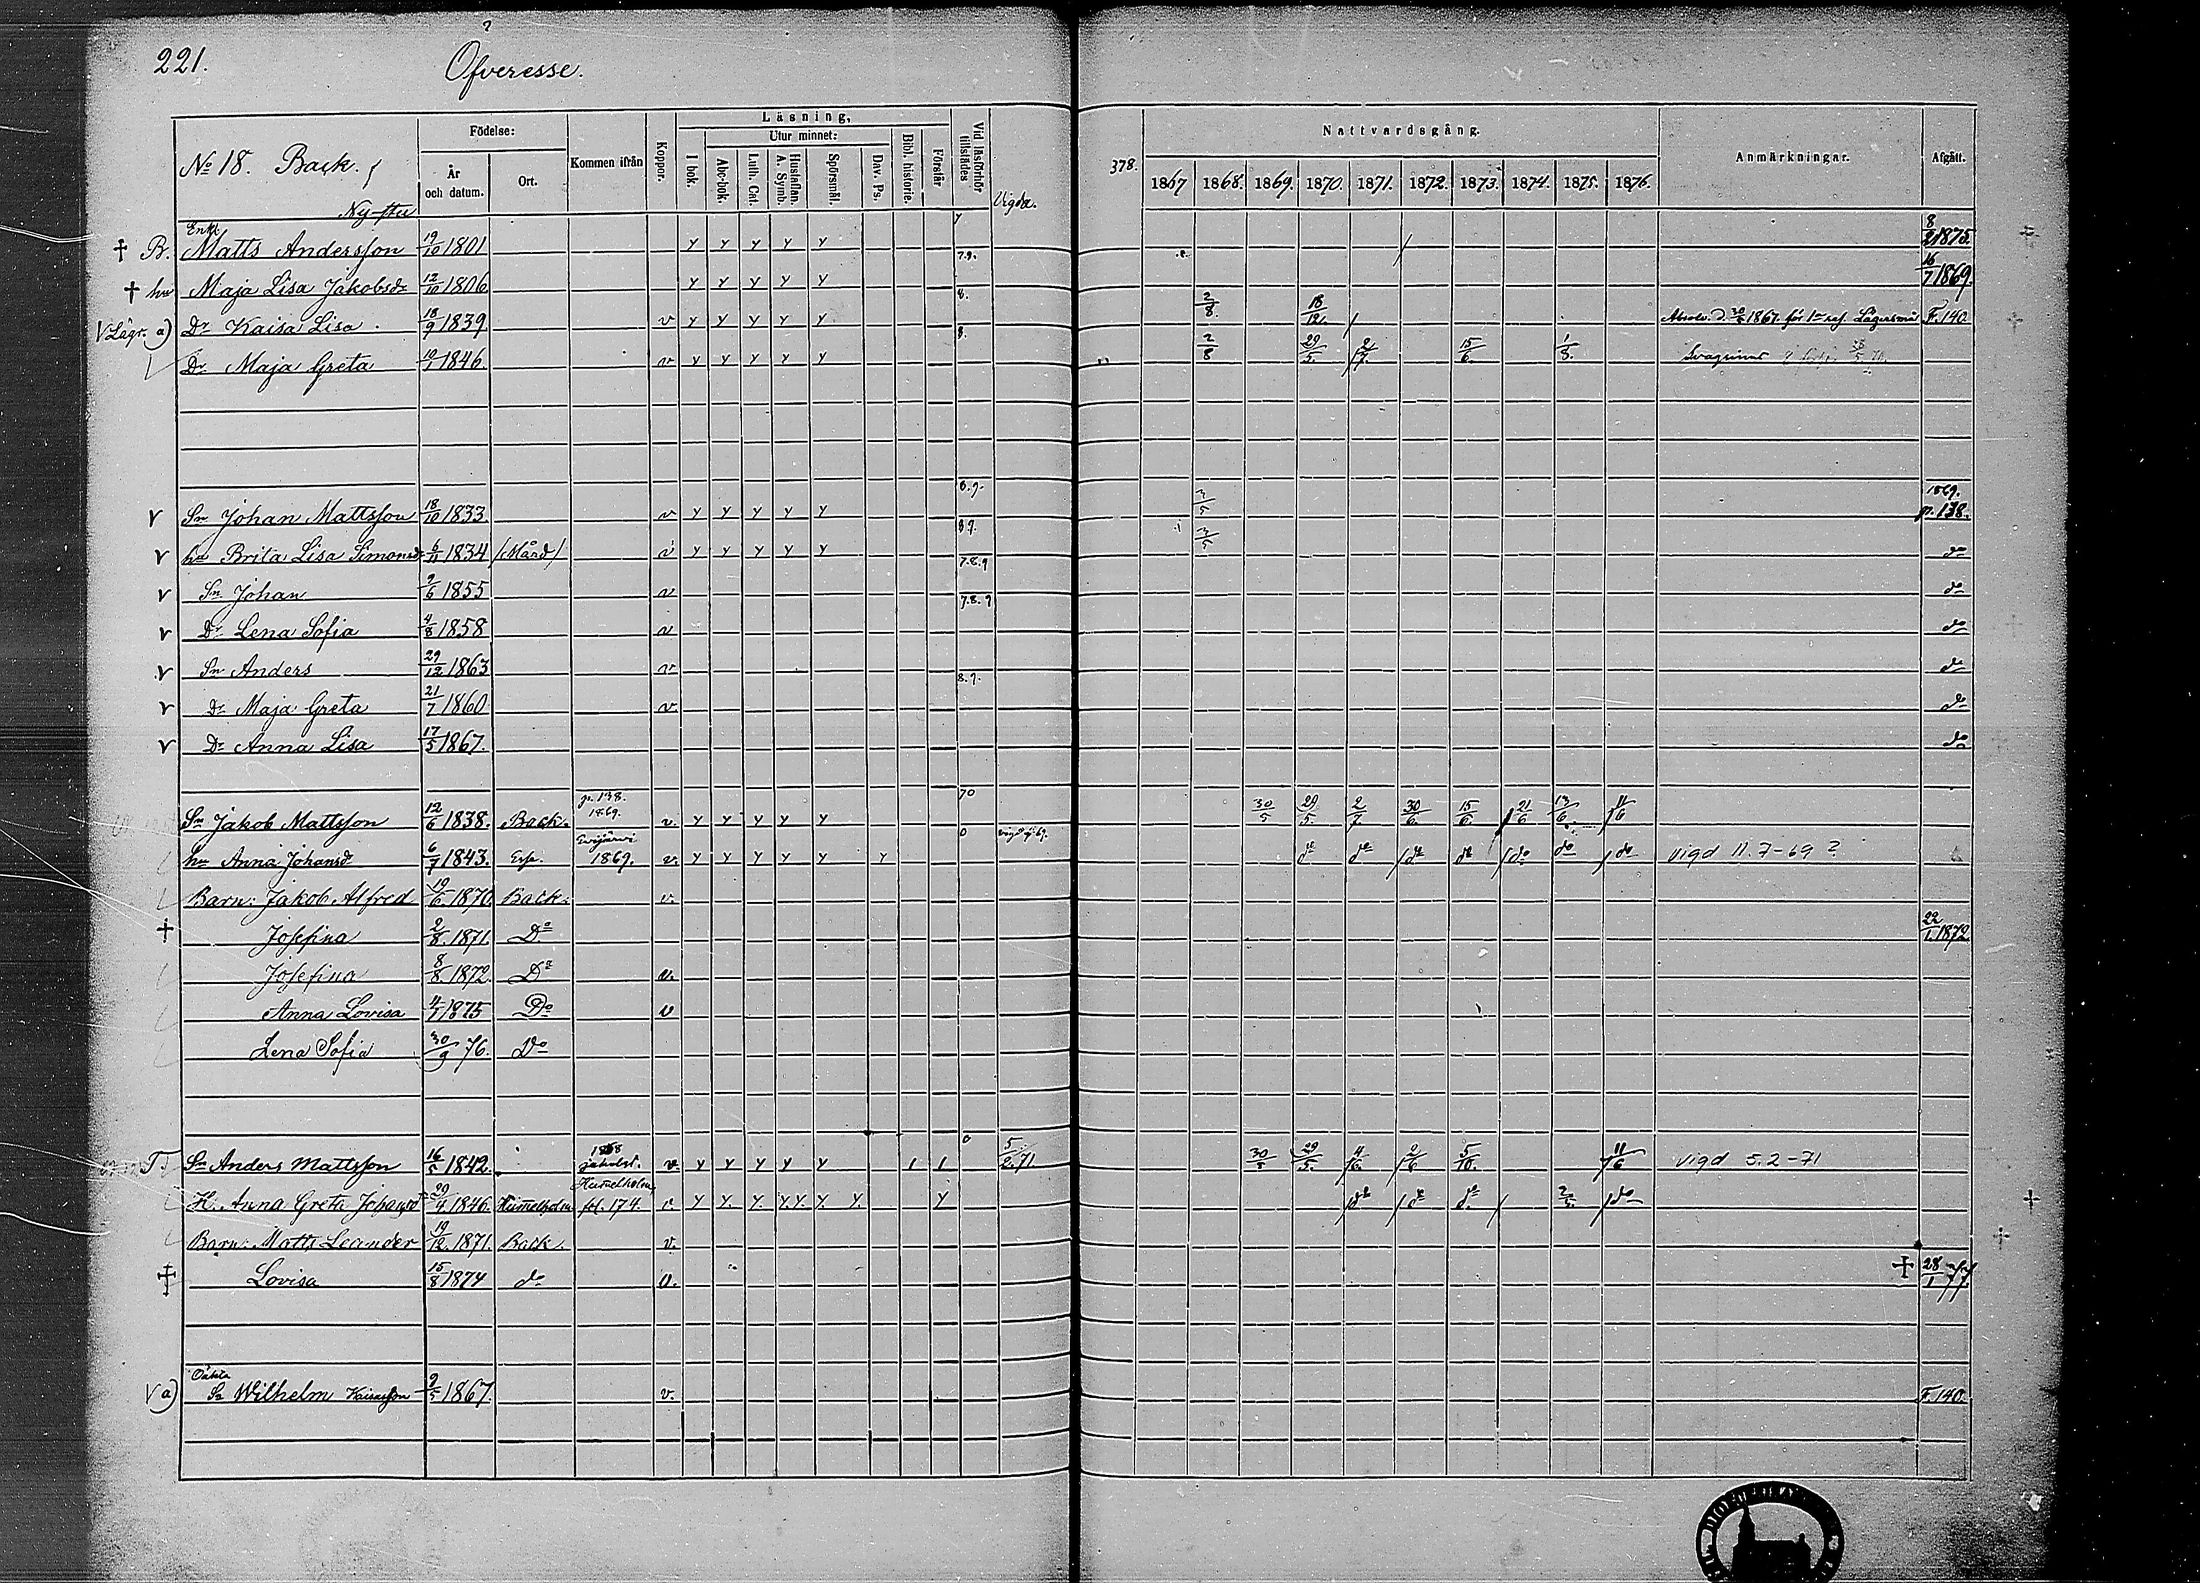 221.
Ofveresse.
No 18. Back.
Ny-stu
Födelse:
År och datum.
Ort.
Kommen ifrån
Koppor.
Läsning,
I bok.
Utur minnet:
Abc-bok.
Luth. Cat.
Hustaflan. A. Symb.
Spörsmål.
Dav. Ps.
Bibl. historie.
Förstår
Vid läsförhör tillstädes
Vigda.
378.
Nattvardsgång.
1867 1868. 1869. 1870. 1871. 1872. 1873. 1874. 1875. 1876.
Anmärkningar.
Afgått.
† B. Enkl. Matts Andersson 19/10 1801 y y y y y 7 8/2 1875.
† hu Maja Lisa Jakobsdr 12/10 1806 y y y y y 7.9. 16/7 1869.
V Lägr. a) Dr Kaisa Lisa 18/9 1839 v y y y y y 8. 2/8 18/12 Absolv. d. 1867 för 1a res. Lägersmål F. 140
Dr Maja Greta 10/1 1846. v y y y y y 8. 2/8 29/5. 2/7. 15/6. 1/8. Svagsint
v Sn Johan Mattsson 18/10 1833. v y y y y y 8.9. 3/5 1869. p. 138.
v hu Brita Lisa Simonsdr 6/11 1834 /Mård/ v y y y y y 8 9. 3/5 do
v Sn Johan 9/6 1855 v 7.8.9 do
v Dr Lena Sofia 4/8 1858 v 7.8.9 do
v Sn Anders 29/12 1863 v do
v Dr Maja Greta 21/7 1860 v. 8.9. do
v Dr Anna Lisa 17/5 1867. do
Sn Jakob Mattsson 12/6 1838. Back. p. 138. 1869. v. y y y y y 70 30/5 29/5. 2/7 30/6. 15/6. 21/6 13/6. 11/6
hu Anna Johansd 6/7 1843. Esp. Evijärvi 1869. v. y y y y y y 0 do do do do do do do vigd 11.7-69 ?
Barn: Jakob Alfred 19/6 1870. Back. v.
† Josefina 2/8. 1871. Do 22/1. 1872
Josefina 8/8. 1872. Do v.
Anna Lovisa 4/1 1875 Do v
Lena Sofia 30/9 76. Do
Sn Anders Mattsson 16/5 1842. 1868 jakobst. v. y y y y y 1 1 0 5/2. 71 30/5 29/5. 4/6. 2/6 5/10. 11/6 vigd 5.2-71
H. Anna Greta Johansdr 29/4. 1846. Humelholm Humelholm, fol. 174. v. y y. y. y.y. y. y. y do do do. do
Barn: Matts Leander 19/12. 1871. Back. v.
† Lovisa 15/8 1874 do v. † 28/1 77.
V a) Oäkta Sn Wilhelm Kaisasson 9/5 1867. v. F. 140.